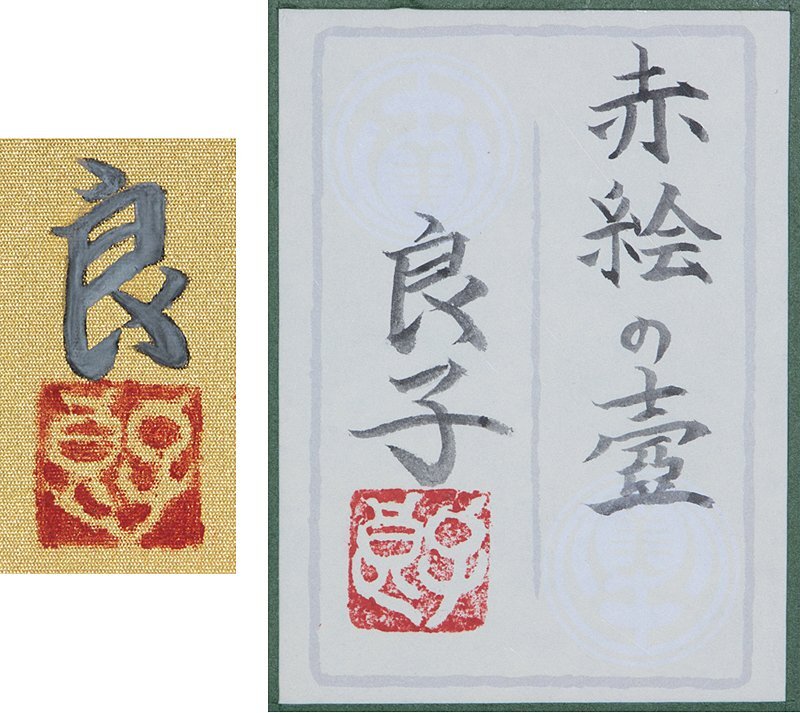 良
赤絵の壺
良子